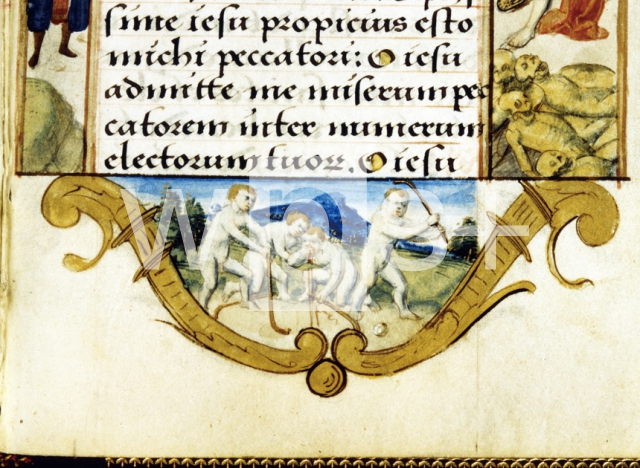 sime iesu propicius esto
michi peccatori: O iesu
admitte me miserum pec
catorem inter numerum
electorum tuoꝝ. O iesu
wpp+